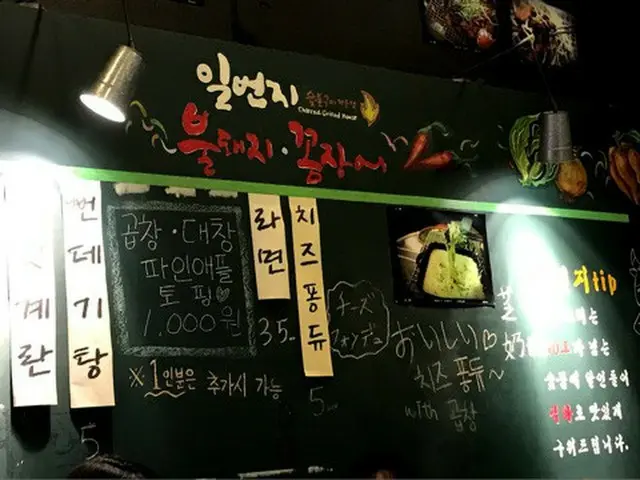 일번지
숯불구이 전문점
Charcoal Grilled House
불돼지·꼼장어
계란
번데기탕
5
곱창·대창
파인애플
토핑♡
1,000원
※1인분은 추가시 가능
라면
35
치즈퐁듀
5
チーズ
フォンデュ
おいしい♡
치즈 퐁듀~
with 곱창
지tip
는
숯불에 달인들이
으로 맛있게
구워드립니다.